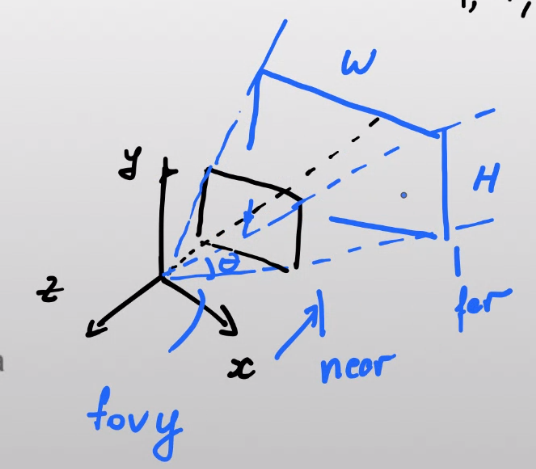 W
y
H
θ
z
far
x
near
fovy